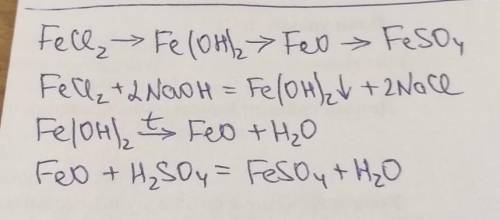 FeCl₂ → Fe(OH)₂ → FeO → FeSO₄
FeCl₂ + 2NaOH = Fe(OH)₂↓ + 2NaCl
Fe(OH)₂ t→ FeO + H₂O
FeO + H₂SO₄ = FeSO₄ + H₂O